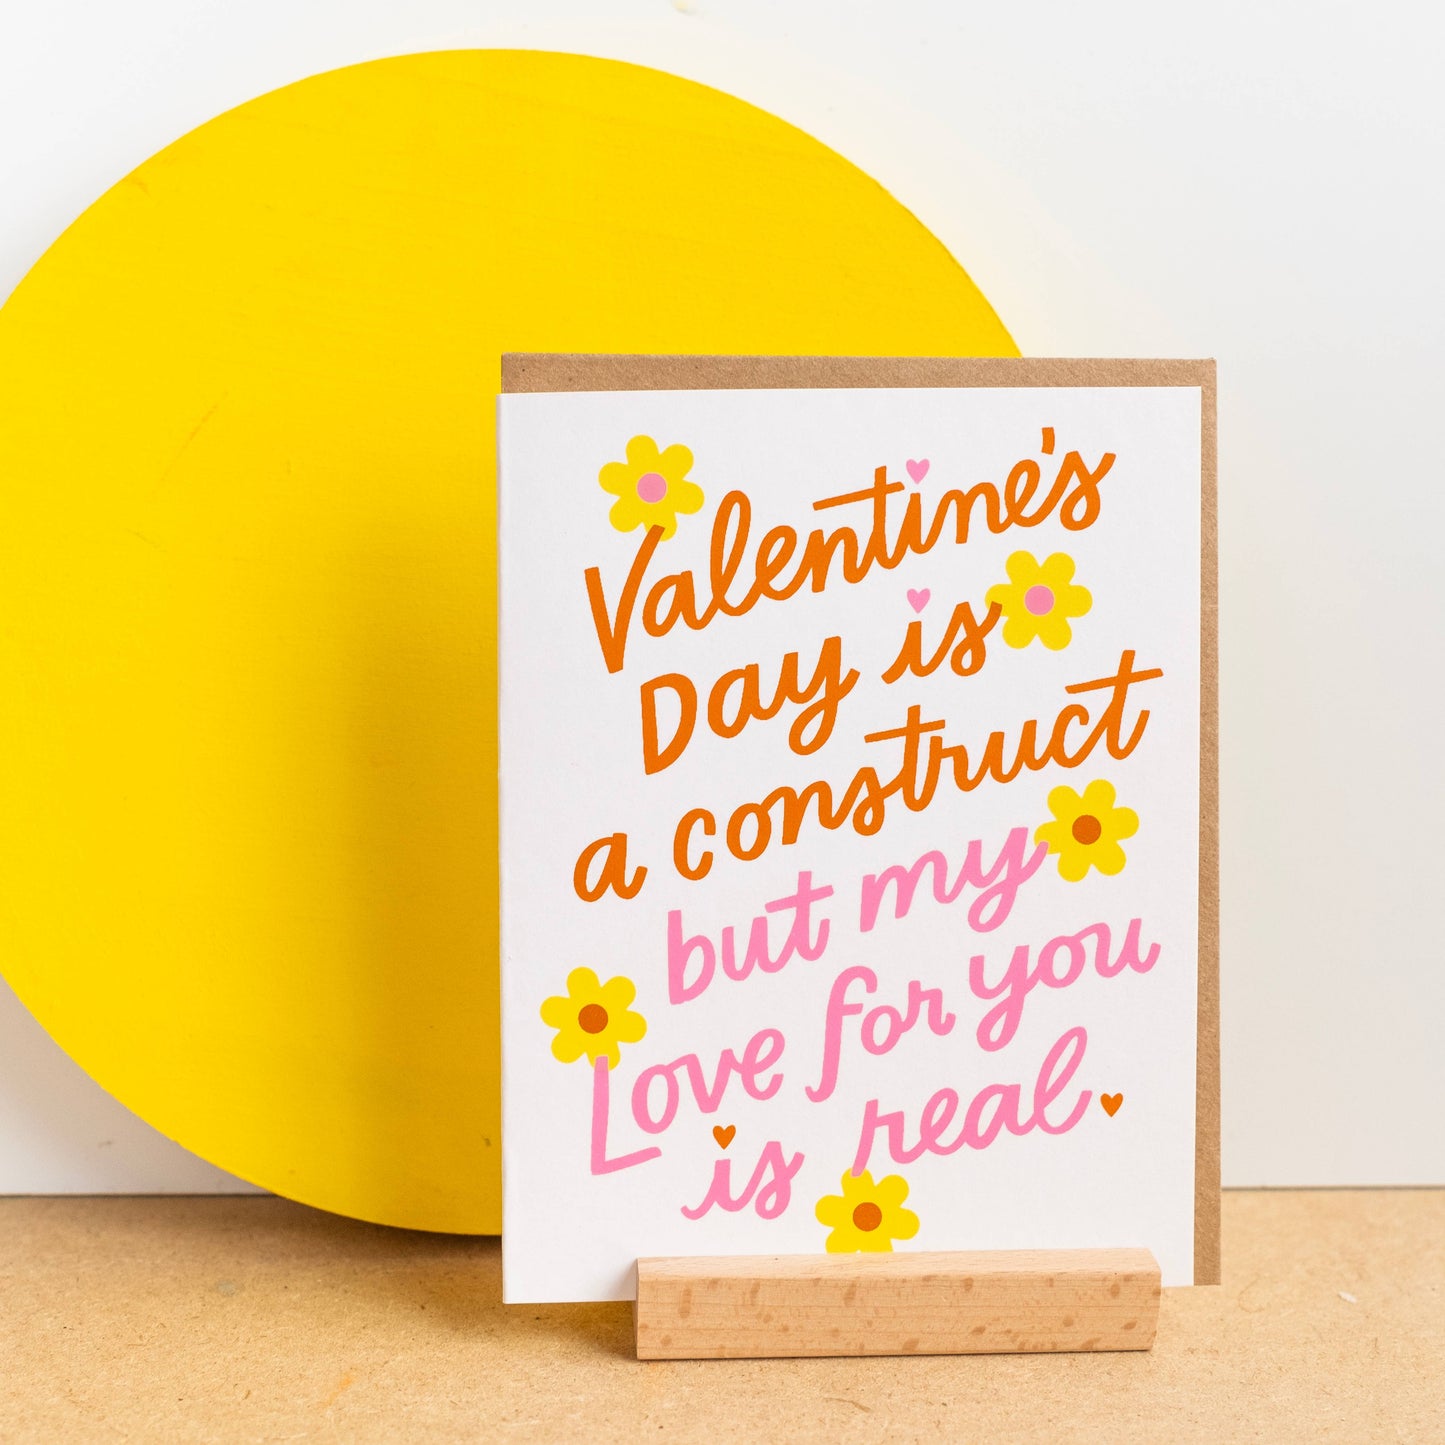 Valentine's
Day is
a construct
but my
Love for you
is real.